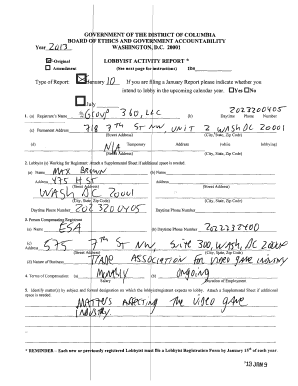 GOVERNMENT OF THE DISTRICT OF COLUMBIA
BOARD OF ETHICS AND GOVERNMENT ACCOUNTABILITY
WASHINGTON, D.C. 20001
Year 2013
Original
Amendment
LOBBYIST ACTIVITY REPORT *
(See next page for instructions)
ID#
Type of Report:
January 10
If you are filing a January Report please indicate whether you
intend to lobby in the upcoming calendar year. Yes No
July
1. (a) Registrant's Name Group 360, LLC (b) 2023200405
Daytime Phone Number
(c) Permanent Address 718 7th St NW Unit 2 Wash DC 20001
(Street Address) (City, State, Zip)
(d) N/A Temporary Address (while lobbying)
(Street Address) (City, State, Zip)
2. Lobbyist (s) Working for Registrant. Attach a Supplemental Sheet if additional space is needed.
(a) Name Max Brown (b) Name
Address 475 H St Address
(Street Address) (Street Address)
Wash DC 20001
(City, State, Zip Code) (City, State, Zip)
Daytime Phone Number 202 320 0405 Daytime Phone Number
3. Person Compensating Registrant
(a) Name ESA (b) Daytime Phone Number 2022232400
(c) Address 575 7th St NW, Suite 300, Wash, DC 20004
(Street Address) (City, State, Zip)
(d) Nature of Business Trade Association for Video Game Industry
4. Terms of Compensation: (a) Monthly (b) ongoing
Salary Duration of Employment
5. Identify matter(s) by subject and formal designation on which the lobbyist/registrant expects to lobby. Attach a Supplemental Sheet if additional
space is needed.
Matters affecting the video game
industry.
* REMINDER – Each new or previously registered Lobbyist must file a Lobbyist Registration Form by January 15th of each year.
'13 JAN 9